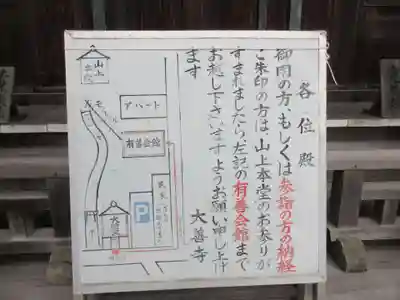 各位殿
御用の方、もしくは参詣の方の納経
ご朱印の方は、山上本堂のお参りが
すまれましたら、左記の有善会館まで
お越し下さいますようお願い申し上げ
ます
大善寺
山上
本堂
アパート
有善会館
P
大善寺